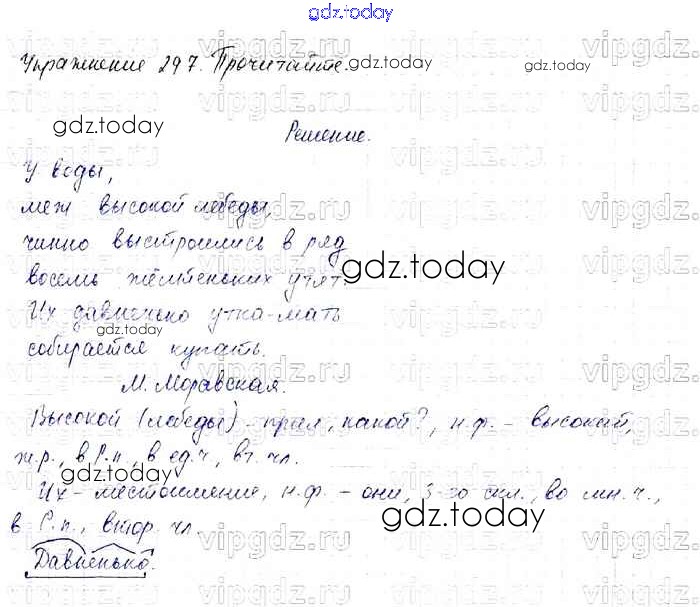 gdz.today
Упражнение 297. Прочитайте.
gdz.today
gdz.today
gdz.today
Решение.
У воды,
меж высокой лебеды,
чинно выстроились в ряд
восемь жёлтеньких утят.
gdz.today
Их давненько утка-мать
gdz.today
собирается купать.
М. Моравская.
Высокой (лебеды) - прил, какой?, н.ф. - высокий,
ж.р., в Р.п., в ед.ч., вт. чл.
gdz.today
Их - местоимение, н.ф. - они, 3-го скл., во мн.ч.,
в Р.п., втор. чл.
gdz.today
Давненько.